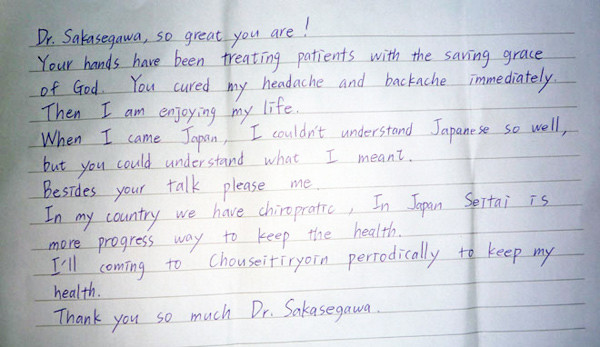 Dr. Sakasegawa, so great you are!
Your hands have been treating patients with the saving grace
of God. You cured my headache and backache immediately.
Then I am enjoying my life.
When I came Japan, I couldn't understand Japanese so well,
but you could understand what I meant.
Besides your talk please me.
In my country we have chiropratic, In Japan Seitai is
more progress way to keep the health.
I'll coming to Chouseitiryoin periodically to keep my
health.
Thank you so much Dr. Sakasegawa.